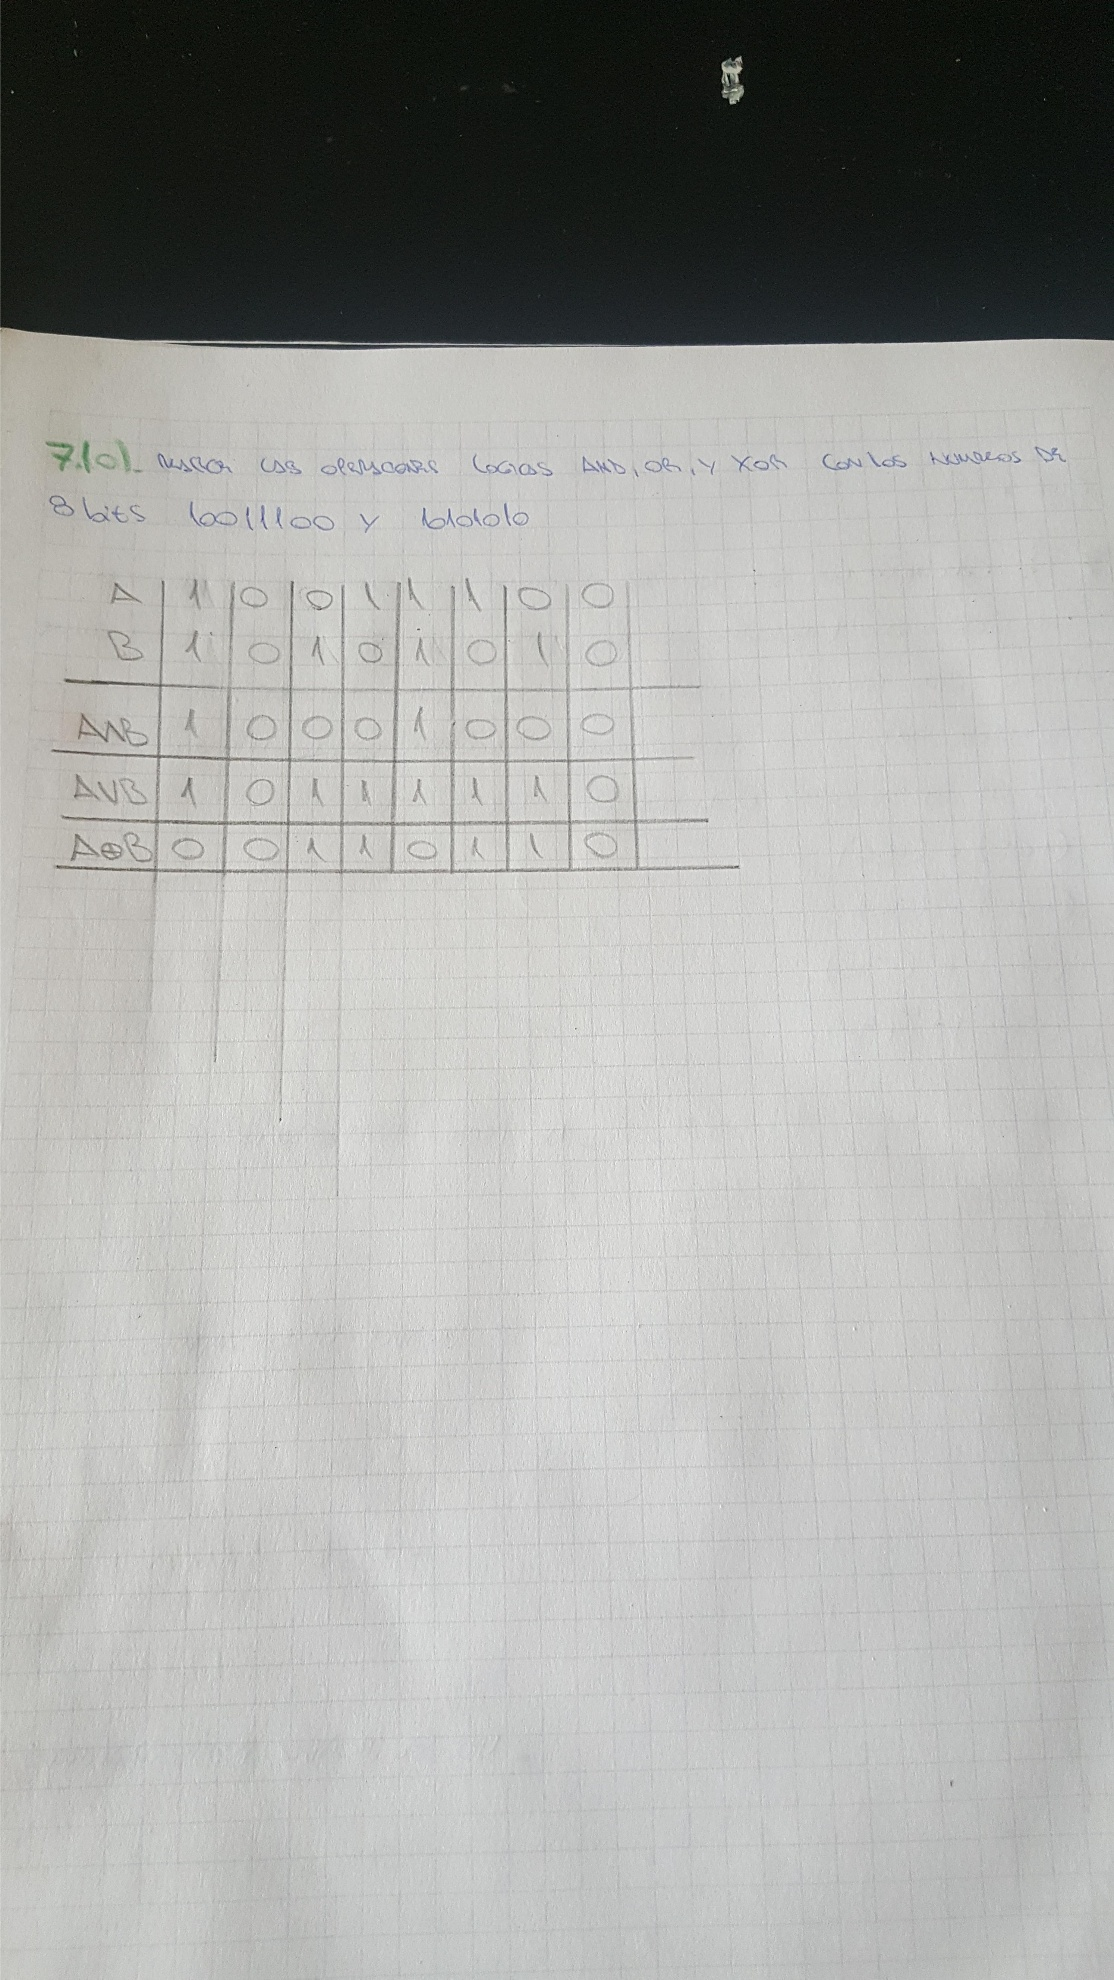 7.10). Realizar las operaciones logicas AND, OR, Y XOR con los numeros de
8 bits 10011100 y 10101010
A 1 0 0 1 1 1 0 0
B 1 0 1 0 1 0 1 0
A∧B 1 0 0 0 1 0 0 0
A∨B 1 0 1 1 1 1 1 0
A⊕B 0 0 1 1 0 1 1 0